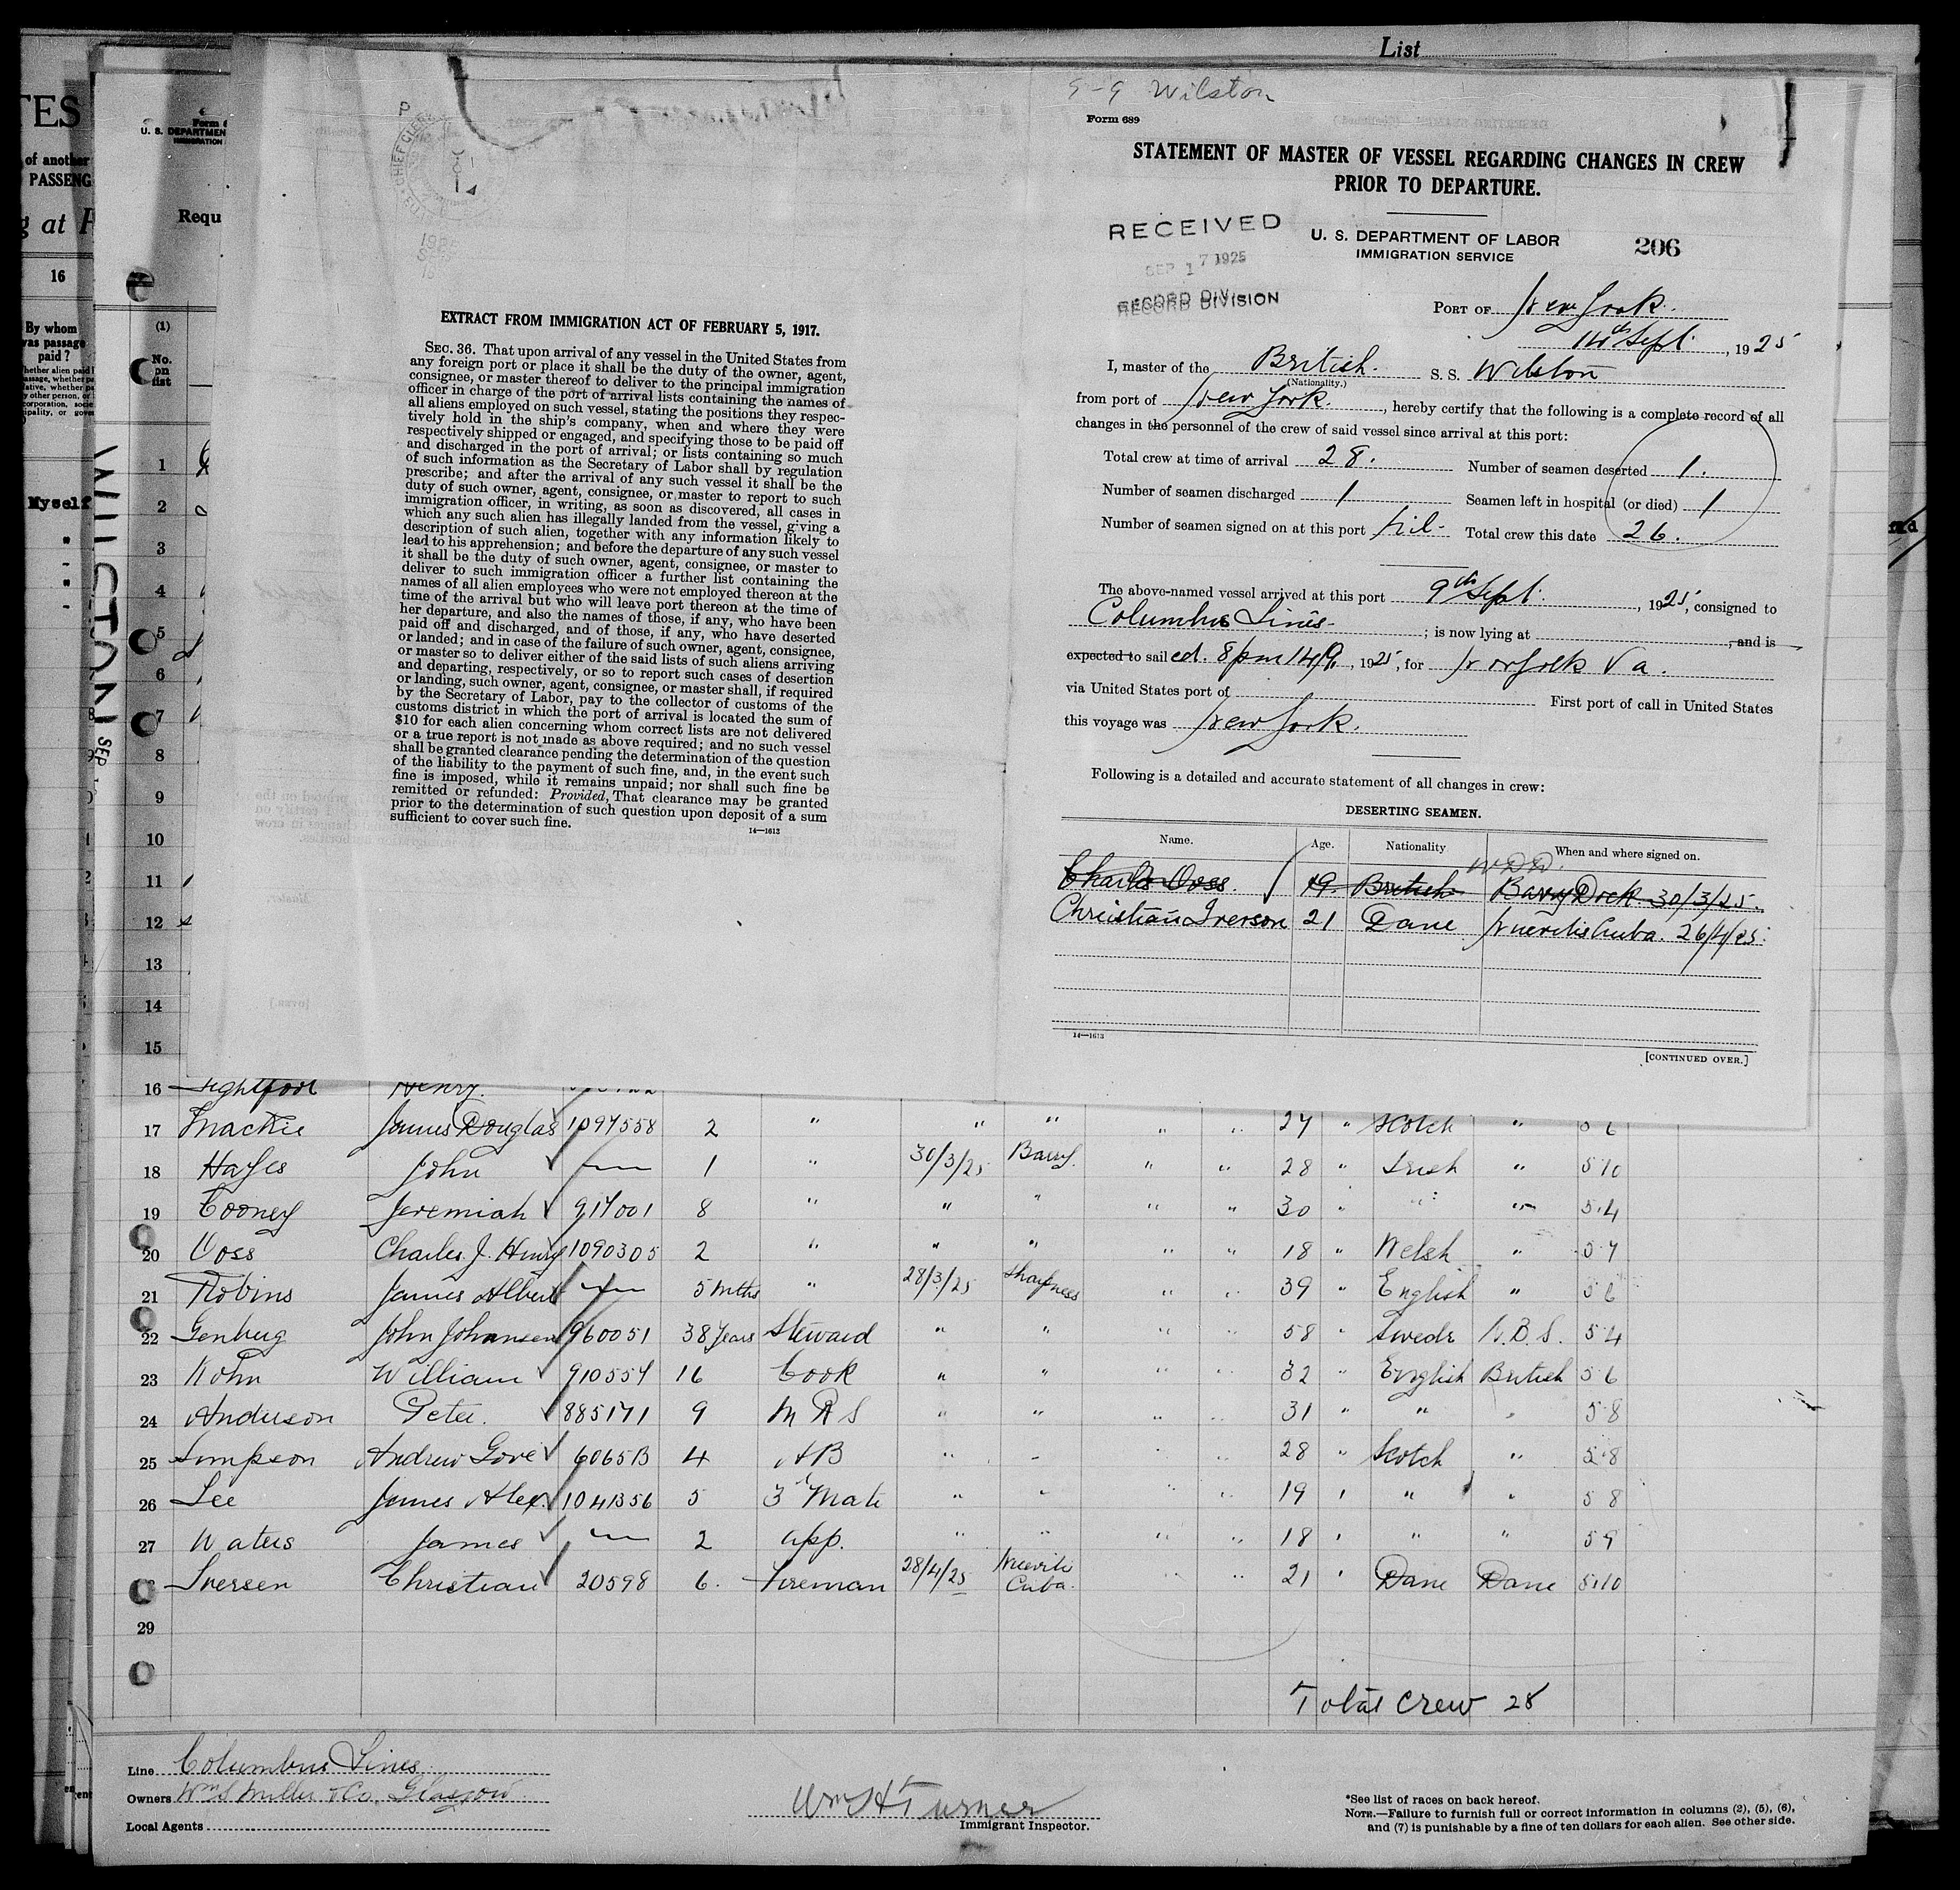 List
9-9 Wilston
Form 689
STATEMENT OF MASTER OF VESSEL REGARDING CHANGES IN CREW
PRIOR TO DEPARTURE.
RECEIVED
SEP 17 1925
RECORD DIVISION
U. S. DEPARTMENT OF LABOR
IMMIGRATION SERVICE
206
PORT OF New York.
14th Sept. , 1925
I, master of the British. S. S. Wilston
(Nationality.)
from port of New York. , hereby certify that the following is a complete record of all
changes in the personnel of the crew of said vessel since arrival at this port:
Total crew at time of arrival 28. Number of seamen deserted 1.
Number of seamen discharged 1 Seamen left in hospital (or died) 1
Number of seamen signed on at this port Nil- Total crew this date 26.
The above-named vessel arrived at this port 9th Sept. , 1925, consigned to
Columbus Lines- ; is now lying at , and is
expected to sailed. 8pm 14/9, 1925, for Norfolk Va.
via United States port of First port of call in United States
this voyage was New York.
Following is a detailed and accurate statement of all changes in crew:
DESERTING SEAMEN.
Name. Age. Nationality When and where signed on.
Charles Voss. 19. British Barry Dock 30/3/25.
Christian Iverson 21 Dane Nuevitis Cuba. 26/4/25.
14—1613
[CONTINUED OVER.]
EXTRACT FROM IMMIGRATION ACT OF FEBRUARY 5, 1917.
SEC. 36. That upon arrival of any vessel in the United States from
any foreign port or place it shall be the duty of the owner, agent,
consignee, or master thereof to deliver to the principal immigration
officer in charge of the port of arrival lists containing the names of
all aliens employed on such vessel, stating the positions they respec-
tively hold in the ship's company, when and where they were
respectively shipped or engaged, and specifying those to be paid off
and discharged in the port of arrival; or lists containing so much
of such information as the Secretary of Labor shall by regulation
prescribe; and after the arrival of any such vessel it shall be the
duty of such owner, agent, consignee, or master to report to such
immigration officer, in writing, as soon as discovered, all cases in
which any such alien has illegally landed from the vessel, giving a
description of such alien, together with any information likely to
lead to his apprehension; and before the departure of any such vessel
it shall be the duty of such owner, agent, consignee, or master to
deliver to such immigration officer a further list containing the
names of all alien employees who were not employed thereon at the
time of the arrival but who will leave port thereon at the time of
her departure, and also the names of those, if any, who have been
paid off and discharged, and of those, if any, who have deserted
or landed; and in case of the failure of such owner, agent, consignee,
or master so to deliver either of the said lists of such aliens arriving
and departing, respectively, or so to report such cases of desertion
or landing, such owner, agent, consignee, or master shall, if required
by the Secretary of Labor, pay to the collector of customs of the
customs district in which the port of arrival is located the sum of
$10 for each alien concerning whom correct lists are not delivered
or a true report is not made as above required; and no such vessel
shall be granted clearance pending the determination of the question
of the liability to the payment of such fine, and, in the event such
fine is imposed, while it remains unpaid; nor shall such fine be
remitted or refunded: Provided, That clearance may be granted
prior to the determination of such question upon deposit of a sum
sufficient to cover such fine.
14—1613
WILSTON SEP
16
By whom
was passage
paid?
Myself
(1)
1
2
3
4
5
6
7
8
9
10
11
12
13
14
15
16 Lightfoot Henry.
17 Mackie James Douglas 1097558 2 " " " " " 27 " Scotch " 5 6
18 Hayes John — 1 " 30/3/25 Barry. " " 28 " Irish " 5 10
19 Cooney Jeremiah 917001 8 " " " " " 30 " " " 5.4
20 Voss Charles J. Henry 1090305 2 " " " " " 18 " Welsh " 5 7
21 Robins James Albert — 5 mths " 28/3/25 Sharpness " " 39 " English " 5 6
22 Genberg John Johansen 960051 38 years Steward " " " " 58 " Swede N.B.S. 5 4
23 Kohn William 910554 16 Cook " " " " 32 " English British 5 6
24 Anderson Peter. 885171 9 M R S " " " " 31 " " " 5 8
25 Simpson Andrew Gove 6065B 4 AB " " " " 28 " Scotch " 5 8
26 Lee James Alex. 1041356 5 3 Mate " " " " 19 " " " 5 8
27 Waters James — 2 app. " " " " 18 " " " 5 9
Iversen Christian 20598 6. Fireman 28/4/25 Nueviti Cuba. " " 21 " Dane Dane 5.10
29
Total Crew 28
Line Columbus Lines.
Owners Wm S Miller & Co. Glasgow
Local Agents
Wm H Turner
Immigrant Inspector.
*See list of races on back hereof.
NOTE.—Failure to furnish full or correct information in columns (2), (5), (6),
and (7) is punishable by a fine of ten dollars for each alien. See other side.